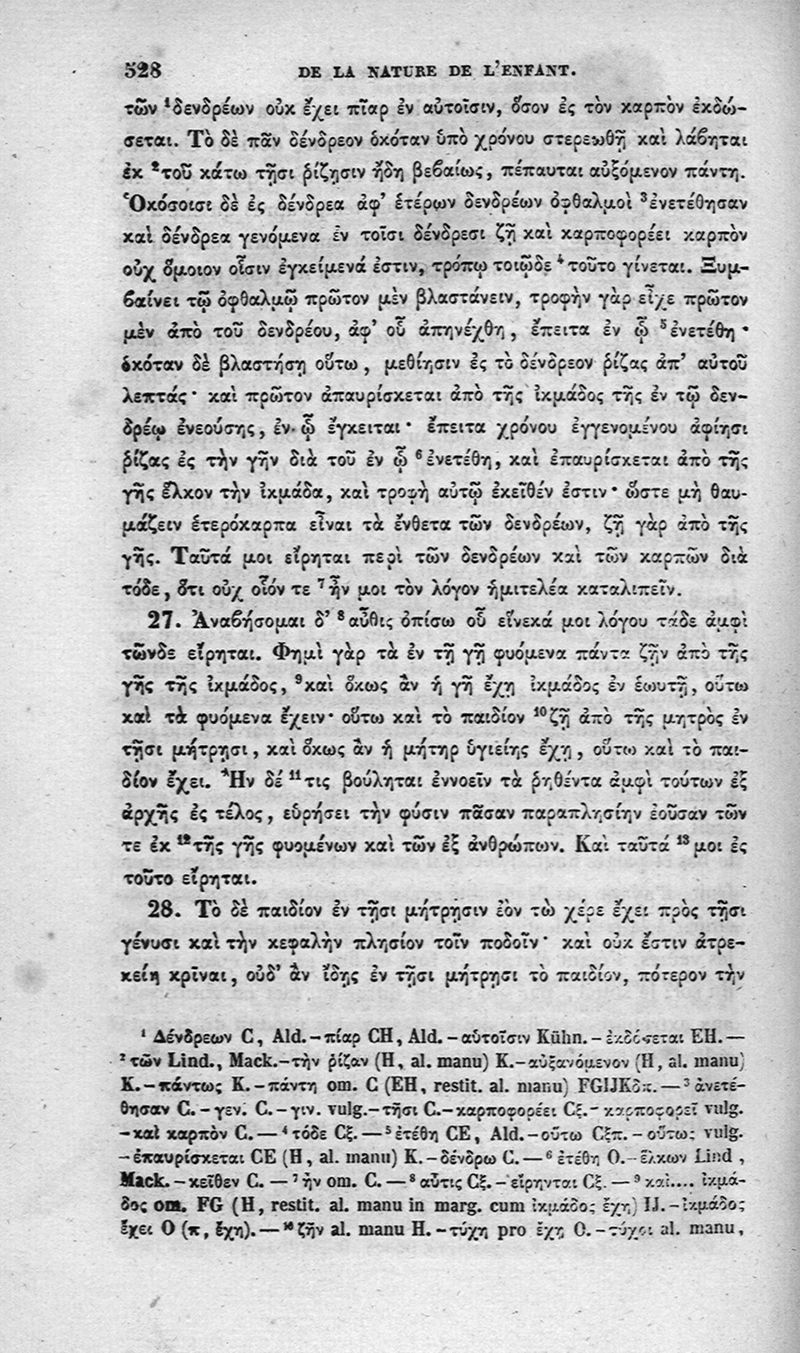 528 DE LA NATURE DE L'ENFANT.
τῶν ¹δενδρέων οὐκ ἔχει πῖαρ ἐν αὐτοῖσιν, ὅσον ἐς τὸν καρπὸν ἐκδώ-
σεται. Τὸ δὲ πᾶν δένδρεον ὁκόταν ὑπὸ χρόνου στερεωθῇ καὶ λάϐηται
ἐκ ²τοῦ κάτω τῇσι ῥίζῃσιν ἤδη βεϐαίως, πέπαυται αὐξόμενον πάντη.
Ὁκόσοισι δὲ ἐς δένδρεα ἀφ' ἑτέρων δενδρέων ὀφθαλμοὶ ³ἐνετέθησαν
καὶ δένδρεα γενόμενα ἐν τοῖσι δένδρεσι ζῇ καὶ καρποφορέει καρπὸν
οὐχ ὅμοιον οἷσιν ἐγκείμενά ἐστιν, τρόπῳ τοιῷδε ⁴τοῦτο γίνεται. Ξυμ-
ϐαίνει τῷ ὀφθαλμῷ πρῶτον μὲν βλαστάνειν, τροφὴν γὰρ εἶχε πρῶτον
μὲν ἀπὸ τοῦ δενδρέου, ἀφ' οὗ ἀπηνέχθη, ἔπειτα ἐν ᾧ ⁵ἐνετέθη·
ὁκόταν δὲ βλαστήσῃ οὕτω, μεθίησιν ἐς τὸ δένδρεον ῥίζας ἀπ' αὐτοῦ
λεπτάς· καὶ πρῶτον ἀπαυρίσκεται ἀπὸ τῆς ἰκμάδος τῆς ἐν τῷ δεν-
δρέῳ ἐνεούσης, ἐν ᾧ ἔγκειται· ἔπειτα χρόνου ἐγγενομένου ἀφίησι
ῥίζας ἐς τὴν γῆν διὰ τοῦ ἐν ᾧ ⁶ἐνετέθη, καὶ ἐπαυρίσκεται ἀπὸ τῆς
γῆς ἕλκον τὴν ἰκμάδα, καὶ τροφὴ αὐτῷ ἐκεῖθέν ἐστιν· ὥστε μὴ θαυ-
μάζειν ἑτερόκαρπα εἶναι τὰ ἔνθετα τῶν δενδρέων, ζῇ γὰρ ἀπὸ τῆς
γῆς. Ταῦτά μοι εἴρηται περὶ τῶν δενδρέων καὶ τῶν καρπῶν διὰ
τόδε, ὅτι οὐχ οἷόν τε ⁷ἦν μοι τὸν λόγον ἡμιτελέα καταλιπεῖν.
27. Ἀναϐήσομαι δ' ⁸αὖθις ὀπίσω οὗ εἵνεκά μοι λόγου τάδε ἀμφὶ
τῶνδε εἴρηται. Φημὶ γὰρ τὰ ἐν τῇ γῇ φυόμενα πάντα ζῇν ἀπὸ τῆς
γῆς τῆς ἰκμάδος, ⁹καὶ ὅκως ἂν ἡ γῆ ἔχῃ ἰκμάδος ἐν ἑωυτῇ, οὕτω
καὶ τὰ φυόμενα ἔχειν· οὕτω καὶ τὸ παιδίον ¹⁰ζῇ ἀπὸ τῆς μητρὸς ἐν
τῇσι μήτρῃσι, καὶ ὅκως ἂν ἡ μήτηρ ὑγιείης ἔχῃ, οὕτω καὶ τὸ παι-
δίον ἔχει. Ἢν δέ ¹¹τις βούληται ἐννοεῖν τὰ ῥηθέντα ἀμφὶ τούτων ἐξ
ἀρχῆς ἐς τέλος, εὑρήσει τὴν φύσιν πᾶσαν παραπλησίην ἐοῦσαν τῶν
τε ἐκ ¹²τῆς γῆς φυομένων καὶ τῶν ἐξ ἀνθρώπων. Καὶ ταῦτά ¹³μοι ἐς
τοῦτο εἴρηται.
28. Τὸ δὲ παιδίον ἐν τῇσι μήτρῃσιν ἐὸν τὼ χέρε ἔχει πρὸς τῇσι
γένυσι καὶ τὴν κεφαλὴν πλησίον τοῖν ποδοῖν· καὶ οὐκ ἔστιν ἀτρε-
κείῃ κρῖναι, οὐδ' ἂν ἴδῃς ἐν τῇσι μήτρῃσι τὸ παιδίον, πότερον τὴν
¹ Δένδρεων C, Ald.-πίαρ CH, Ald. - αὑτοῖσιν Kühn. - ἐκδόσεται EH. —
² τῶν Lind., Mack.-τὴν ῥίζαν (H, al. manu) K.-αὐξανόμενον (H, al. manu)
K.-πάντως K. -πάντη om. C (EH, restit. al. manu) FGIJKδπ. — ³ ἀνετέ-
θησαν C. - γεν. C. - γιν. vulg.-τῇσι C.-καρποφορέει Cξ.- καρποφορεῖ vulg.
-καὶ καρπὸν C. — ⁴ τόδε Cξ. — ⁵ ἐτέθη CE, Ald.-οὕτω Cξπ. - οὕτως vulg.
- ἐπαυρίσκεται CE (H, al. manu) K. -δένδρω C. — ⁶ ἐτέθη O. - ἕλκων Lind,
Mack. - κεῖθεν C. — ⁷ ἦν om. C. — ⁸ αὖτις Cξ. - εἴρηνται Cξ. — ⁹ καὶ.... ἰκμά-
δος om. FG (H, restit. al. manu in marg. cum ἰκμάδος ἔχῃ) IJ. -ἰκμάδος
ἔχει O (π, ἔχῃ). — ¹⁰ ζῆν al. manu H. -τύχη pro ἔχῃ O. -τύχοι al. manu,